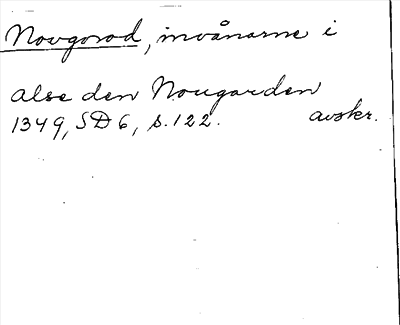 Novgorod, invånarne i
alse den Nougarden
1349, SD 6, s. 122. avskr.